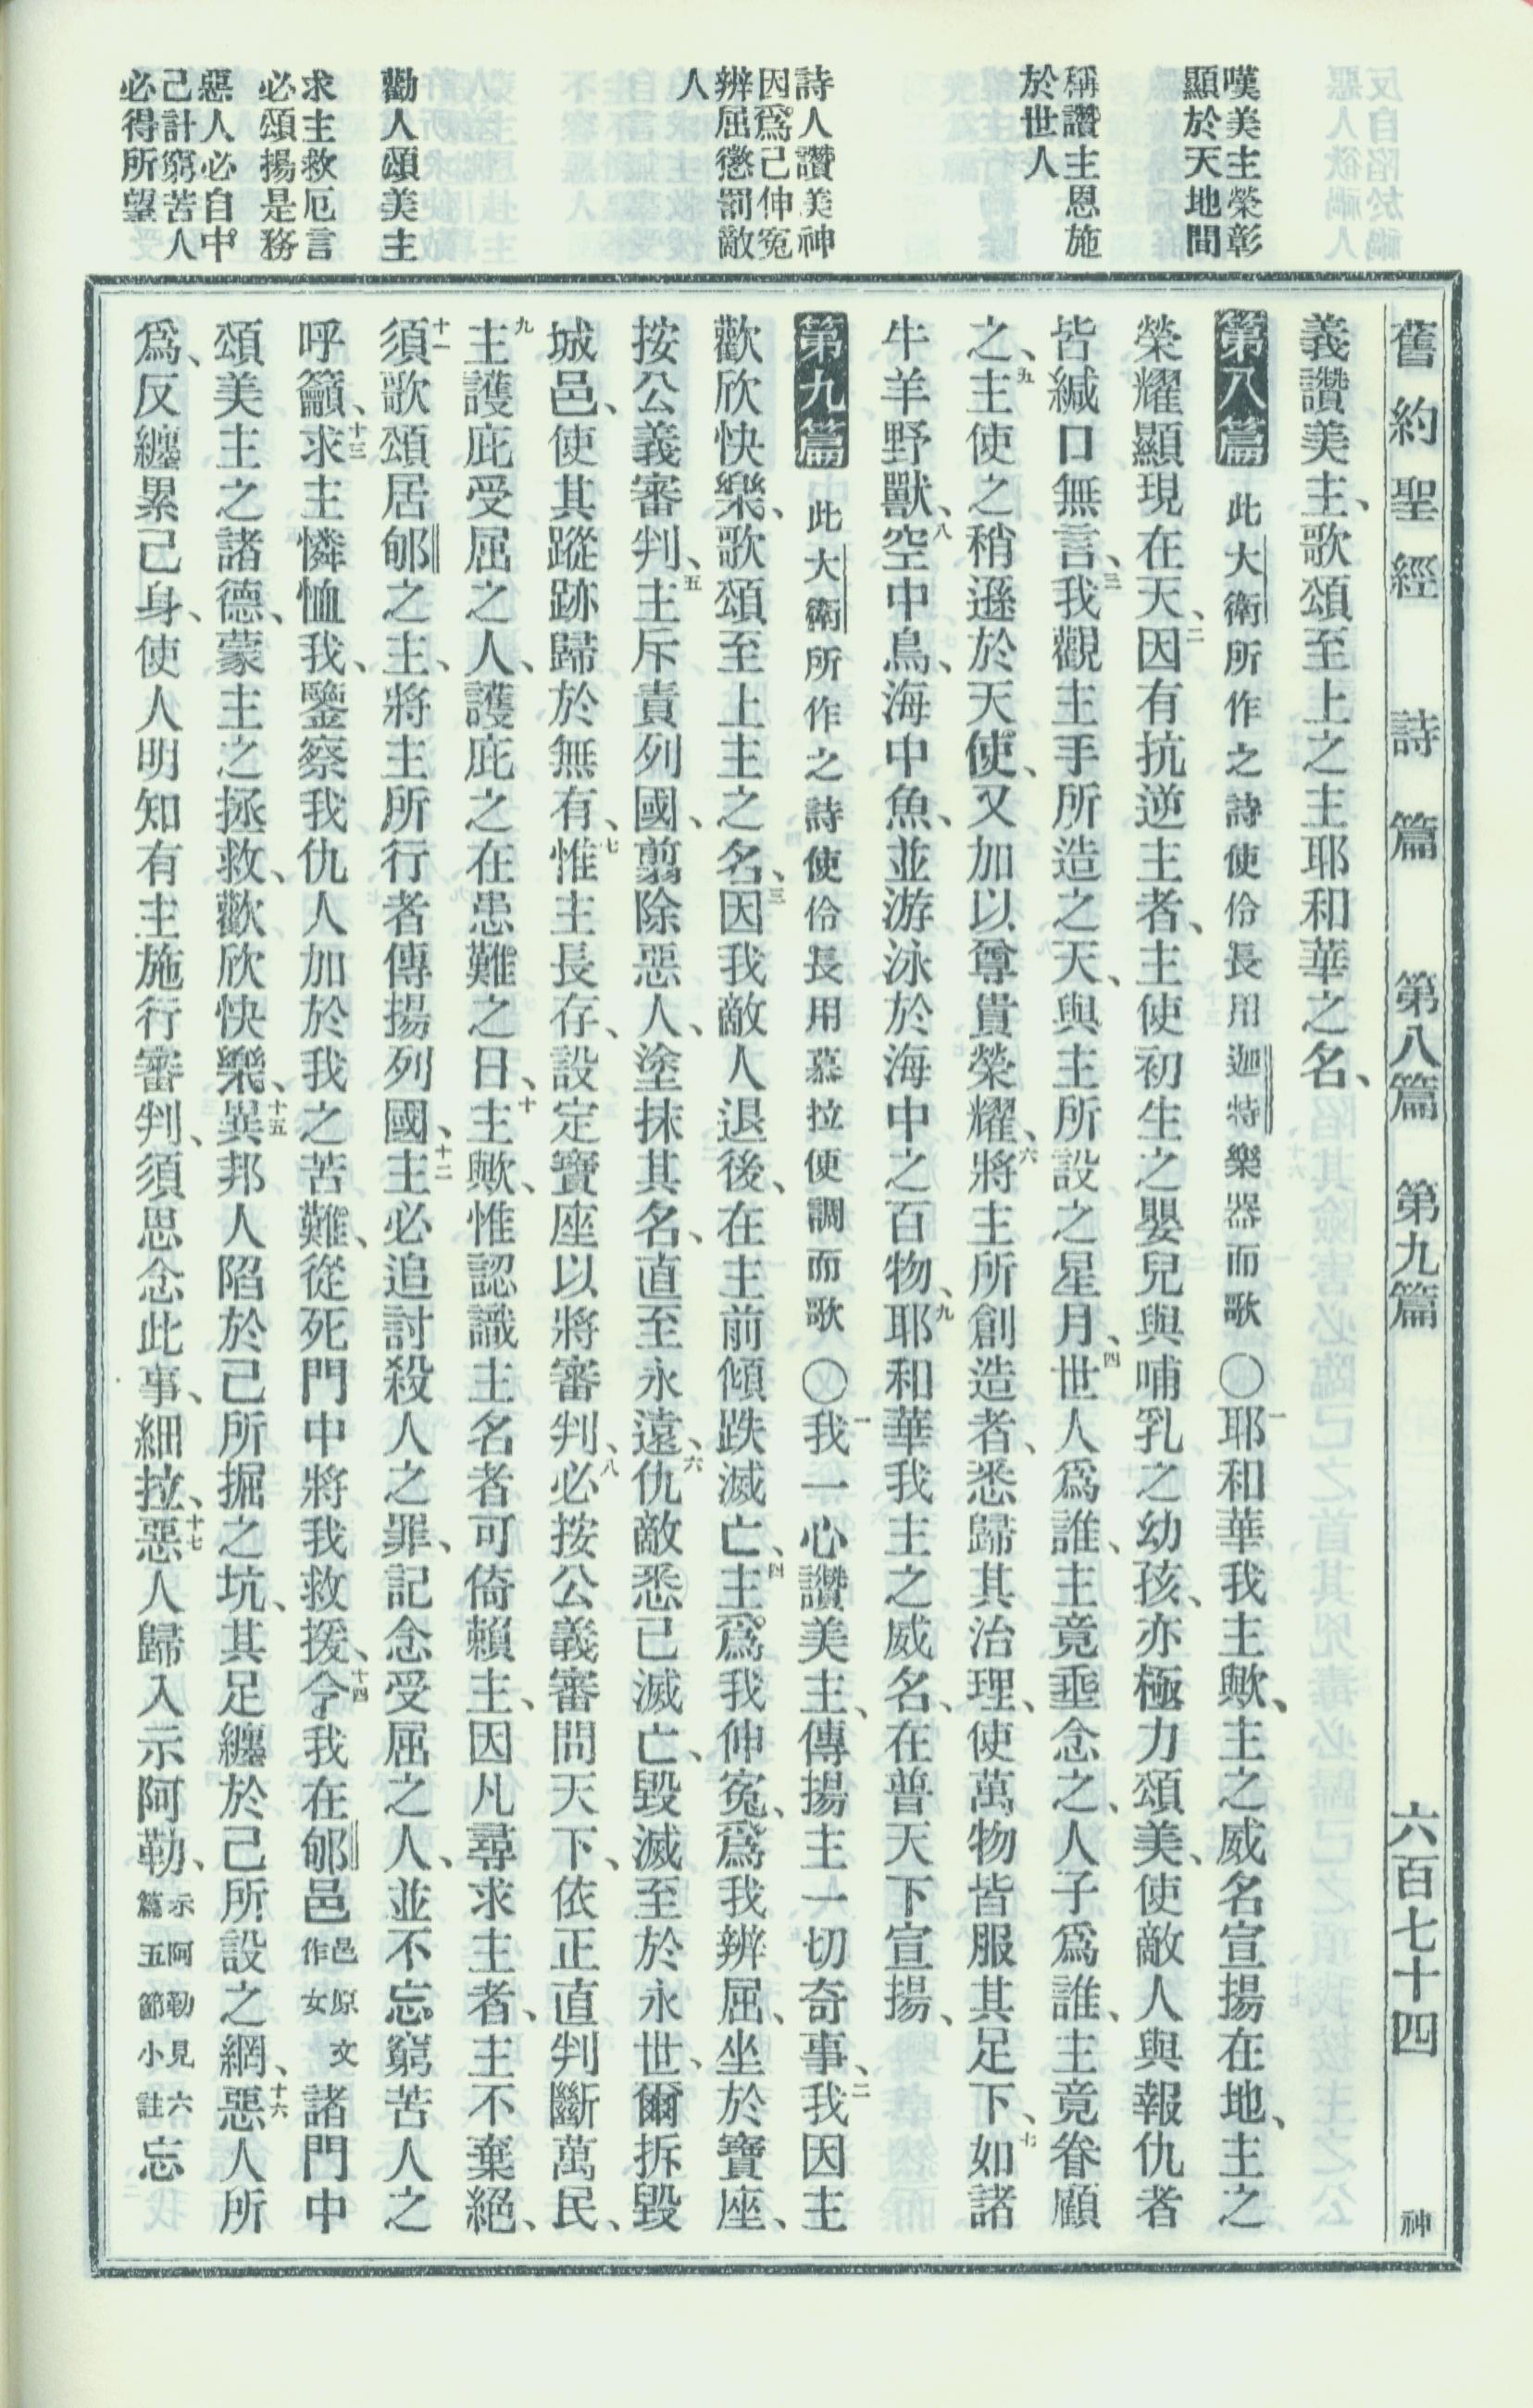 舊約聖經 詩篇 第八篇 第九篇 六百七十四 神
嘆美主榮彰
顯於天地間
稱讚主恩施
於世人
詩人讚美神
因爲己伸冤
辨屈懲罰敵
人
勸人頌美主
求主救厄言
必頌揚是務
惡人必自中
己計窮苦人
必得所望
義讚美主、歌頌至上之主耶和華之名、
第八篇 此大衛所作之詩使伶長用迦特樂器而歌 〇一耶和華我主歟、主之威名宣揚在地、主之
榮耀顯現在天、二因有抗逆主者、主使初生之嬰兒與哺乳之幼孩、亦極力頌美、使敵人與報仇者
皆緘口無言、三我觀主手所造之天、與主所設之星月、四世人爲誰、主竟垂念之、人子爲誰、主竟眷顧
之、五主使之稍遜於天使、又加以尊貴榮耀、六將主所創造者、悉歸其治理、使萬物皆服其足下、七如諸
牛羊野獸、八空中鳥、海中魚、並游泳於海中之百物、九耶和華我主之威名、在普天下宣揚、
第九篇 此大衛所作之詩使伶長用慕拉便調而歌 〇一我一心讚美主、傳揚主一切奇事、二我因主
歡欣快樂、歌頌至上主之名、三因我敵人退後、在主前傾跌滅亡、四主爲我伸冤、爲我辨屈、坐於寶座、
按公義審判、五主斥責列國、翦除惡人、塗抹其名、直至永遠、六仇敵悉已滅亡、毀滅至於永世、爾拆毀
城邑、使其蹤跡歸於無有、七惟主長存、設定寶座以將審判、八必按公義審問天下、依正直判斷萬民、
九主護庇受屈之人、護庇之在患難之日、十主歟、惟認識主名者可倚賴主、因凡尋求主者、主不棄絕、
十一須歌頌居郇之主、將主所行者傳揚列國、十二主必追討殺人之罪、記念受屈之人、並不忘窮苦人之
呼籲、十三求主憐恤我、鑒察我仇人加於我之苦難、從死門中將我救援、十四令我在郇邑邑原文作女諸門中
頌美主之諸德、蒙主之拯救、歡欣快樂、十五異邦人陷於己所掘之坑、其足纏於己所設之網、十六惡人所
爲、反纏累己身、使人明知有主施行審判、須思念此事、細拉、十七惡人歸入示阿勒、示阿勒見六篇五節小註忘